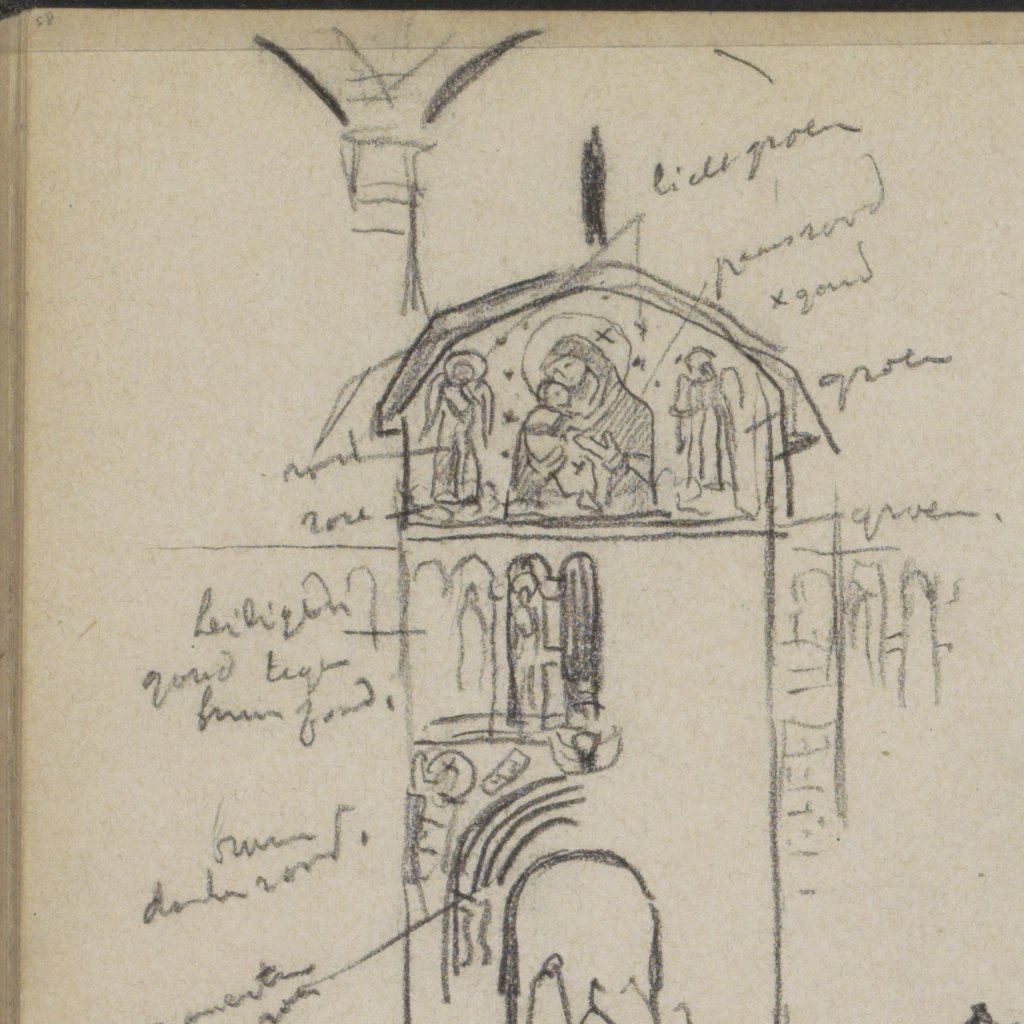 58
lichtgroen
paarsrood
x goud
groen
rood
roze
groen.
heiligen
goud tegen
bruin fond.
bruin
donker rood.